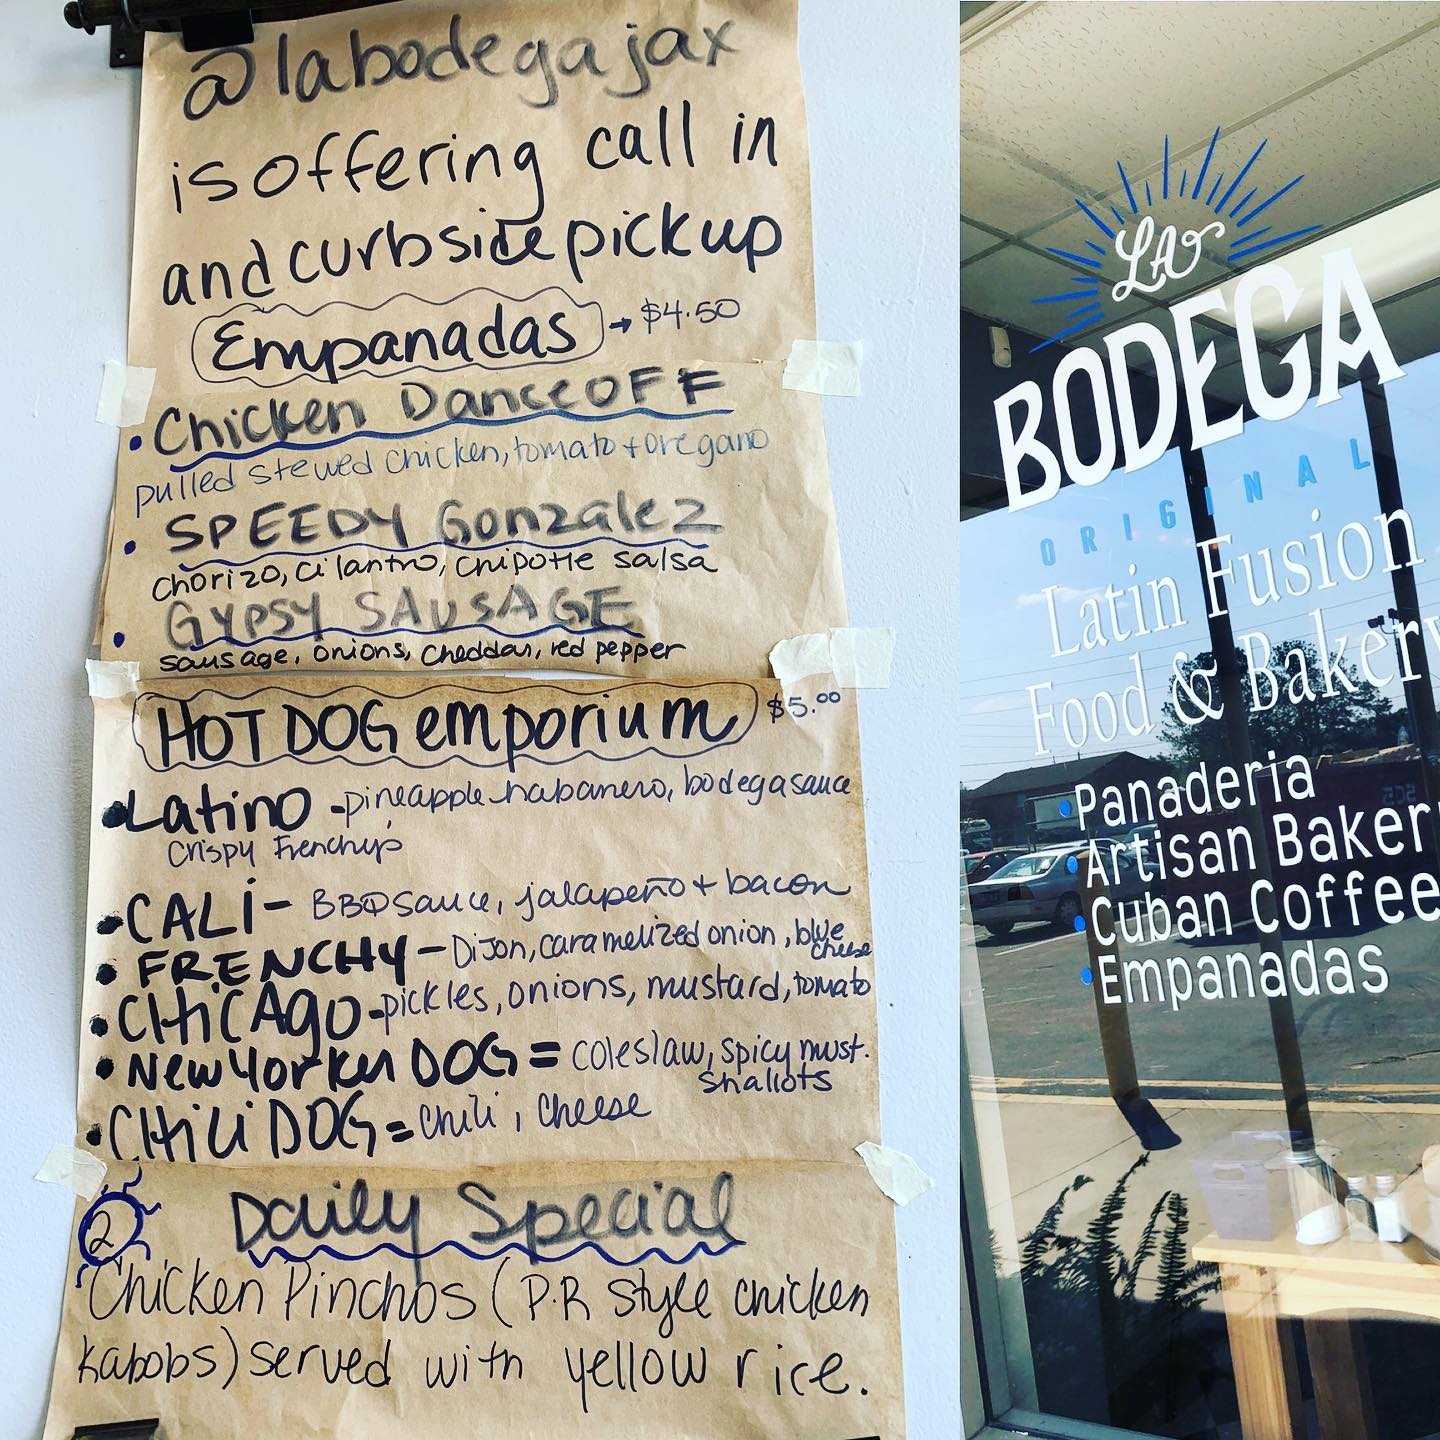 @labodegajax
is offering call in
and curbside pickup
Empanadas → $4.50
• Chicken Dance OFF
pulled stewed chicken, tomato + oregano
• SPEEDY Gonzalez
chorizo, cilantro, chipotle salsa
• GYPSY SAUSAGE
sausage, onions, cheddar, red pepper
HOT DOG emporium $5.00
• Latino - pineapple habanero, bodega sauce
crispy Frenchy's
• CALI - BBQ sauce, jalapeño + bacon
• FRENCHY - Dijon, caramelized onion, blue cheese
• CHiCAgo - pickles, onions, mustard, tomato
• New Yorker DOG = coleslaw, spicy must.
shallots
• CHiLi DOG = chili, cheese
2 Daily Special
Chicken Pinchos (P.R style chicken
kabobs) served with yellow rice.
LA
BODEGA
ORIGINAL
Latin Fusion
Food & Bakery
• Panaderia
• Artisan Baker
• Cuban Coffee
• Empanadas